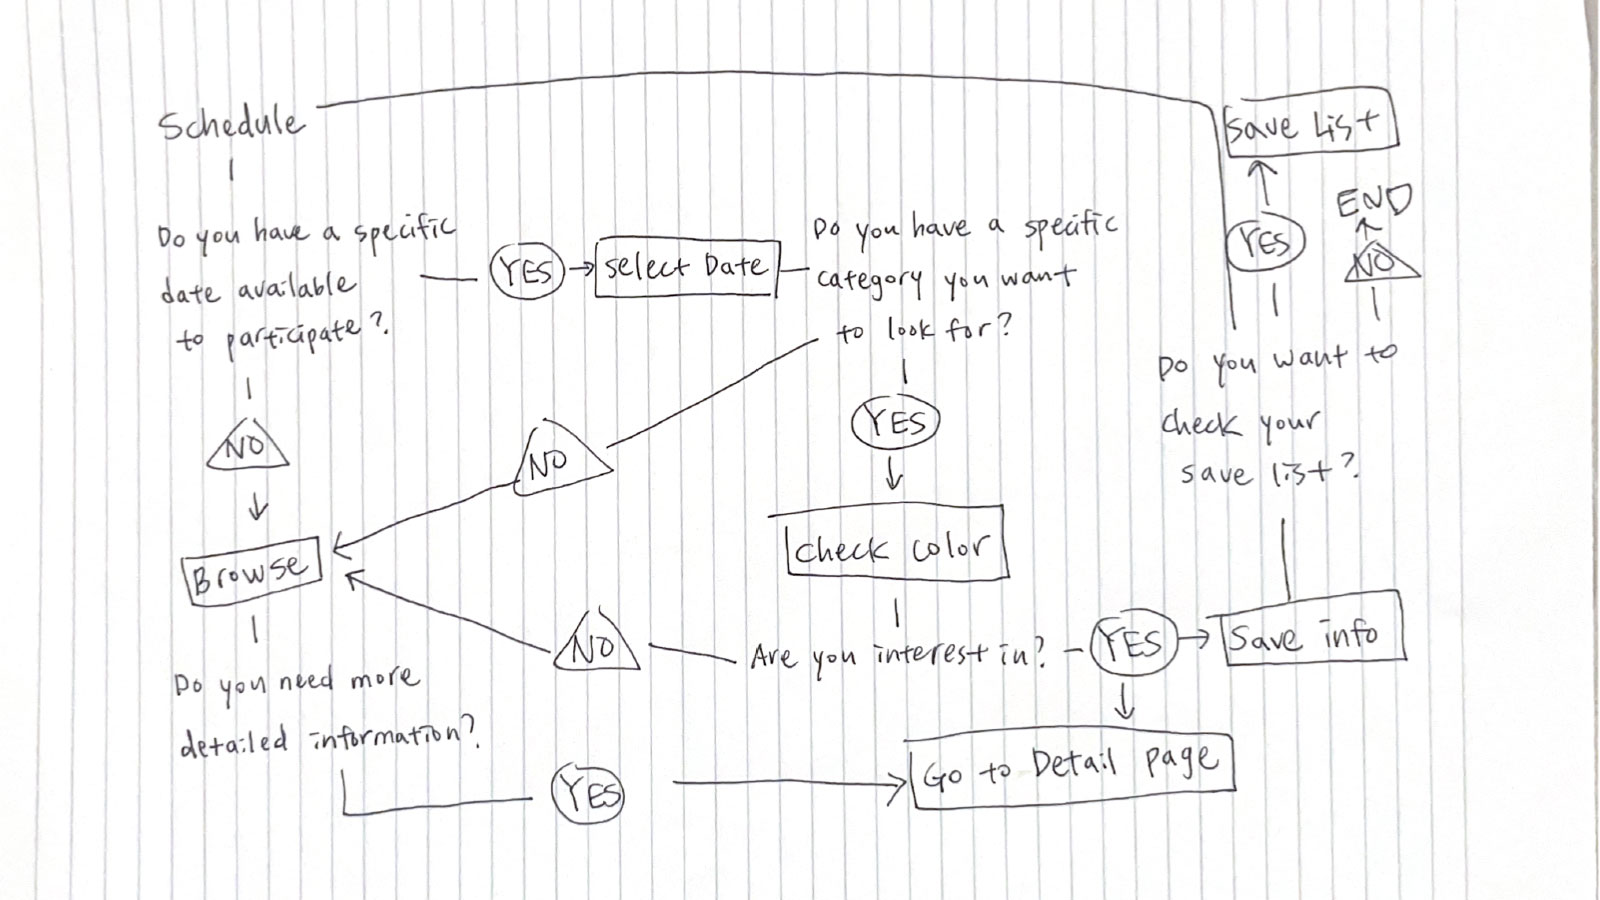 Schedule
Do you have a specific
date available
to participate?
YES
select Date
Do you have a specific
category you want
to look for?
NO
NO
YES
Browse
check color
Do you need more
detailed information?
NO
Are you interest in?
YES
Save info
YES
Go to Detail page
Do you want to
check your
save list?
YES
save List
NO
END